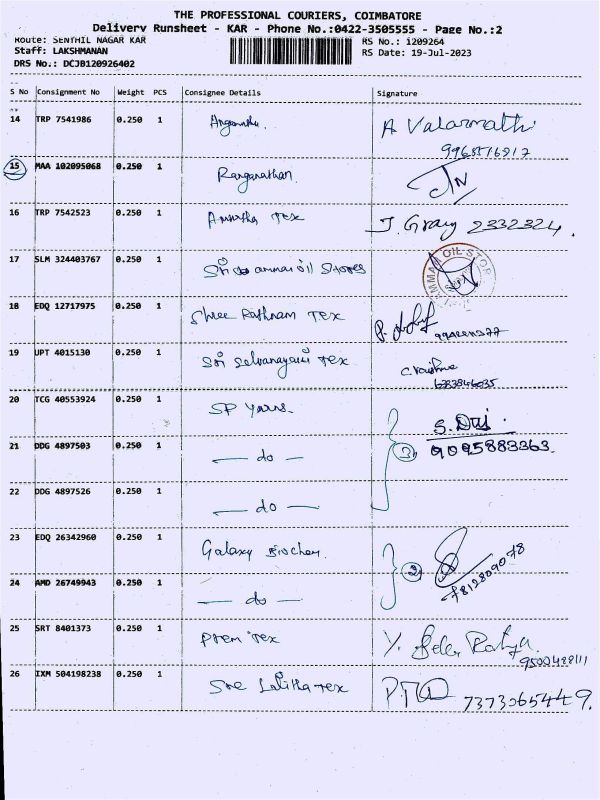 THE PROFESSIONAL COURIERS, COIMBATORE
Delivery Runsheet - KAR - Phone No.:0422-3505555 - Page No.:2
Route: SENTHIL NAGAR KAR
RS No.: i209264
Staff: LAKSHMANAN
RS Date: 19-Jul-2023
DRS No.: DCJB120926402
S No Consignment No Weight PCS Consignee Details Signature
14 TRP 7541986 0.250 1 A Valarmathi
15 MAA 102095068 0.250 1 Ranganathan
16 TRP 7542523 0.250 1 Amirtha Tex 2332324.
17 SLM 324403767 0.250 1 Sri amman oil Stores
18 EDQ 12717975 0.250 1 Shree Rathnam Tex
19 UPT 4015130 0.250 1 Sri Selvanayaki Tex
20 TCG 40553924 0.250 1 SP Yarns.
21 DDG 4897503 0.250 1 — do — 3 9095883363.
22 DDG 4897526 0.250 1 — do —
23 EDQ 26342960 0.250 1 Galaxy Biochem. 7812809078
24 AMD 26749943 0.250 1 — do — 2
25 SRT 8401373 0.250 1 Prem Tex
26 IXM 504198238 0.250 1 Sree Lalitha Tex 7373065449.